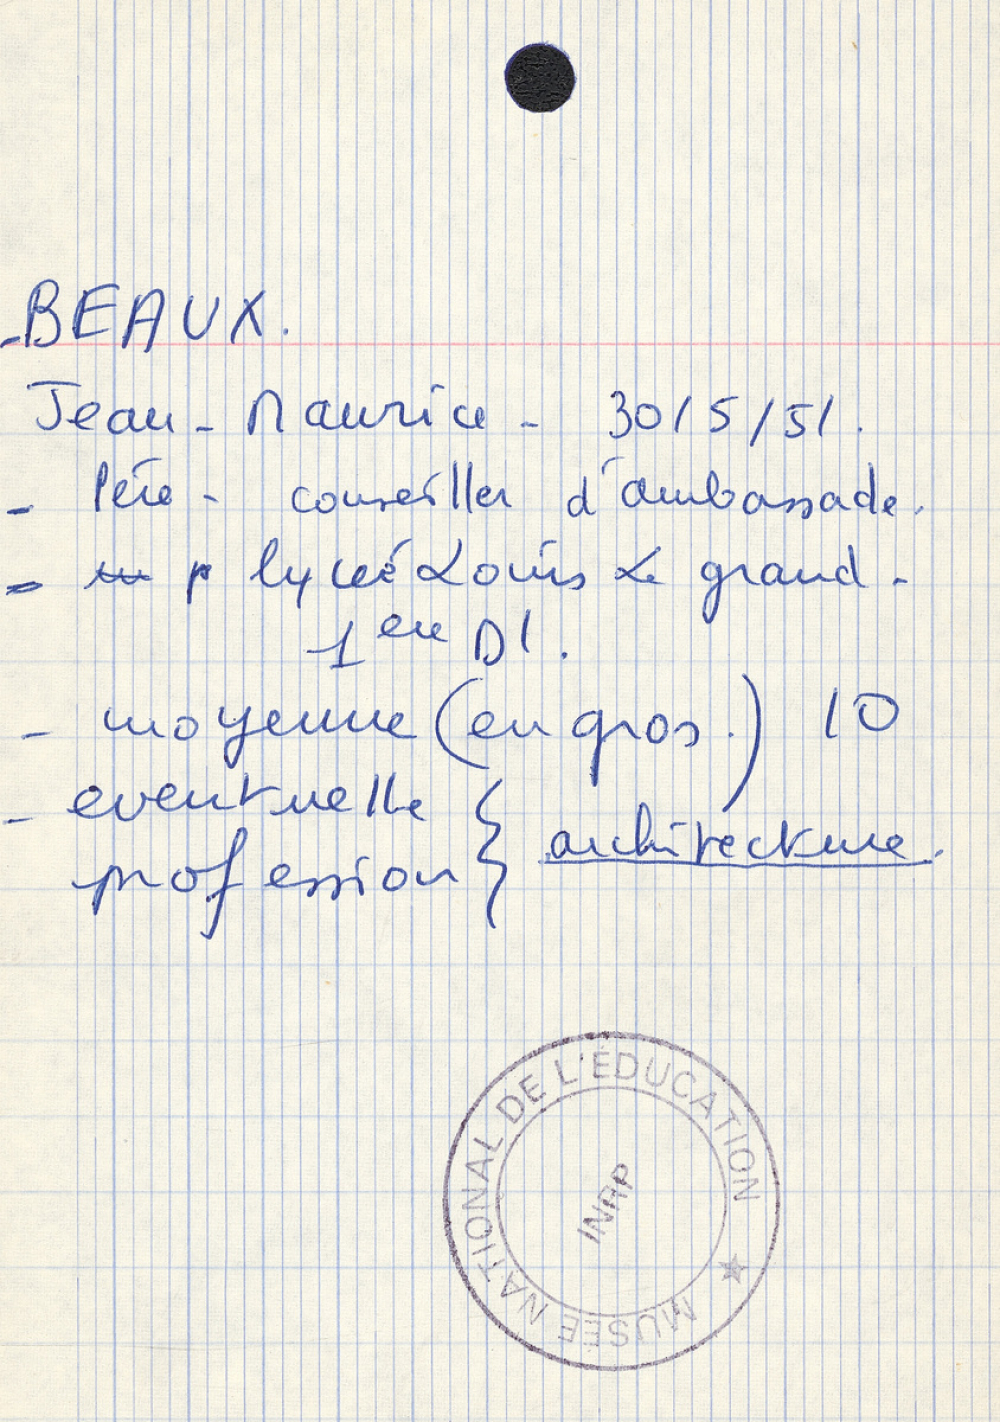 - BEAUX.
Jean - Maurice - 30/5/51.
- Père - conseiller d'ambassade.
- p lycée Louis Le grand -
1ere D1.
- moyenne (en gros.) 10
- eventuelle
profession } architecture.
MUSÉE NATIONAL DE L'ÉDUCATION
INRP